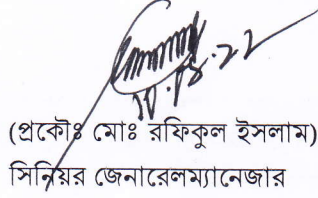 (প্রকৌঃ মোঃ রফিকুল ইসলাম)
সিনিয়র জেনারেলম্যানেজার